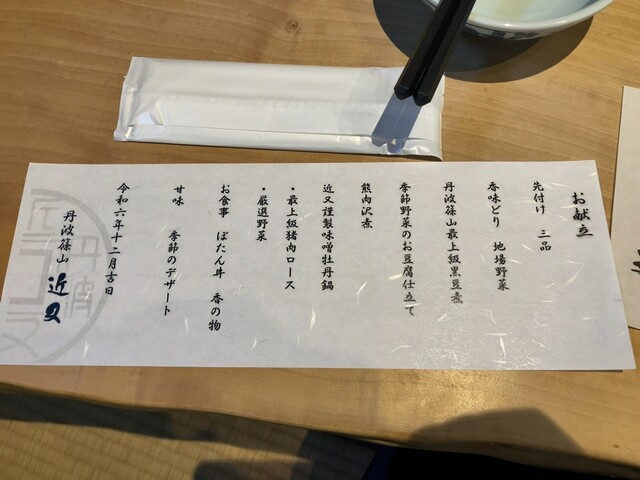 お献立
先付け　三品
香味どり　地場野菜
丹波篠山最上級黒豆煮
季節野菜のお豆腐仕立て
熊肉沢煮
近又謹製味噌牡丹鍋
・最上級猪肉ロース
・厳選野菜
お食事　ぼたん丼　香の物
甘味　季節のデザート
令和六年十二月吉日
丹波篠山　近又